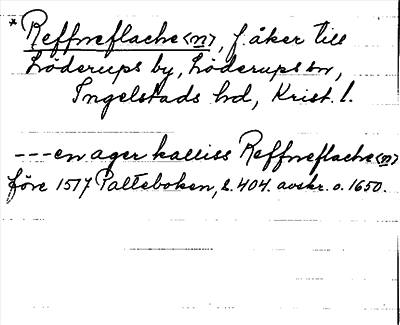 *Reffweflache<n>, f. åker till
Löderups by, Löderups sn,
Ingelstads hd, Krist. l.
---en ager kalliss Reffweflache<n>
före 1517 Palteboken, s. 404. avskr. o. 1650.